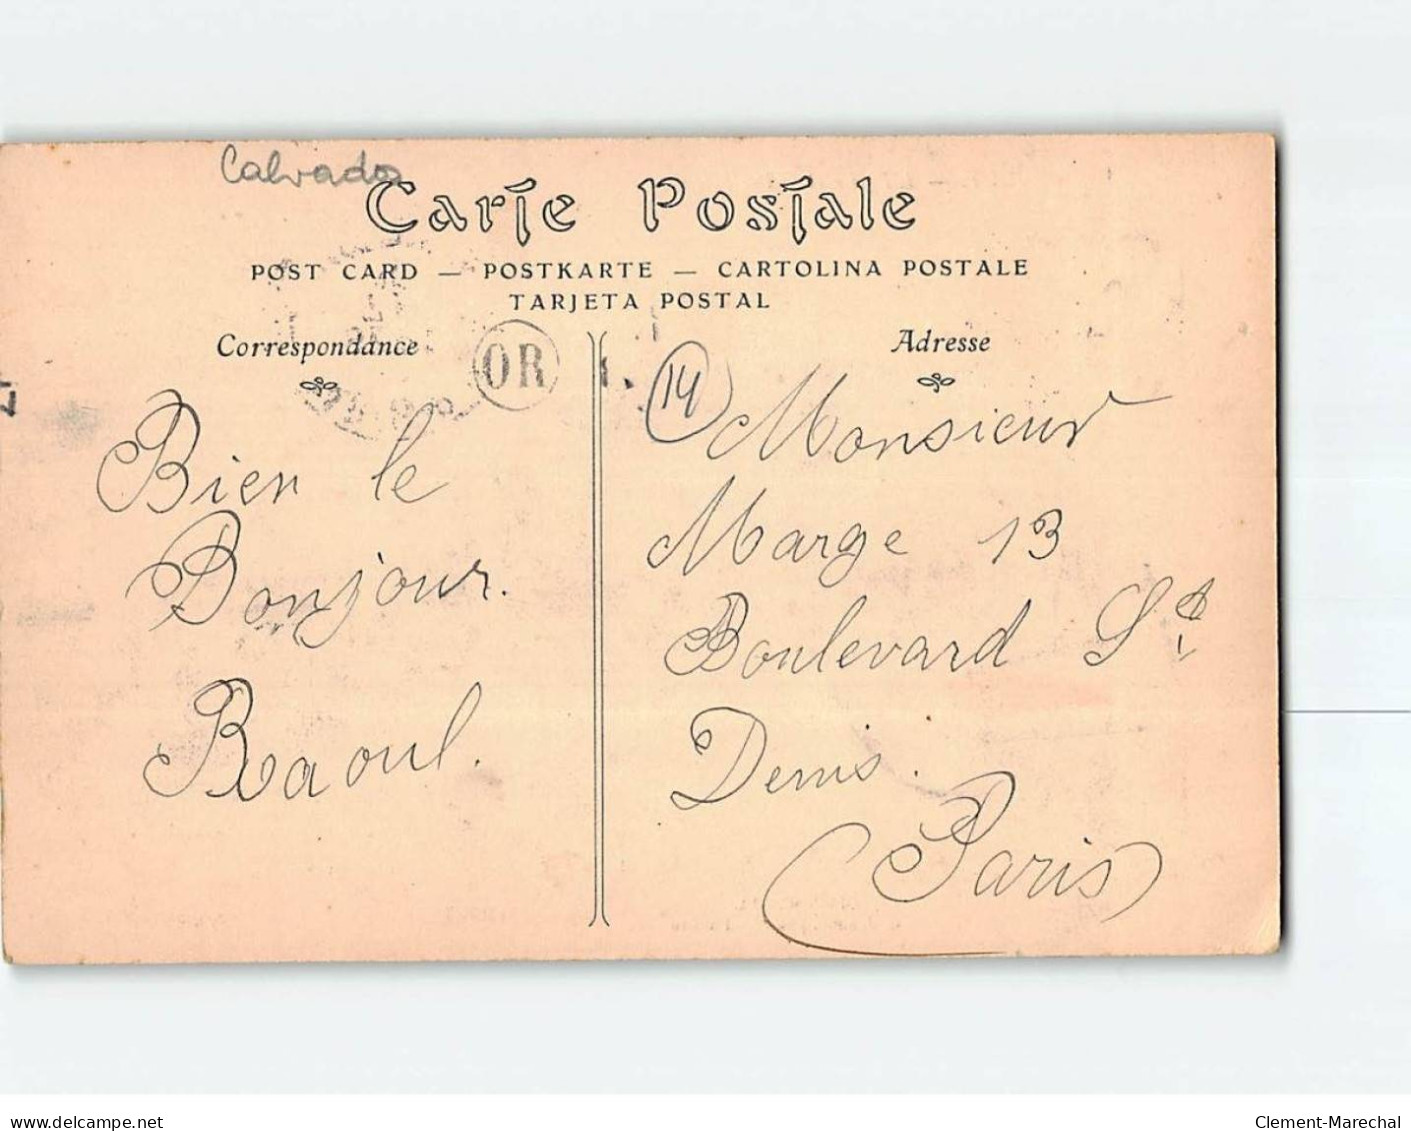 Calvados
Carte Postale
POST CARD — POSTKARTE — CARTOLINA POSTALE
TARJETA POSTAL
Correspondance
OR
Bien le
Bonjour.
Raoul.
Adresse
14
Monsieur
Marge 13
Boulevard St
Denis.
Paris
www.delcampe.net
Clement-Marechal